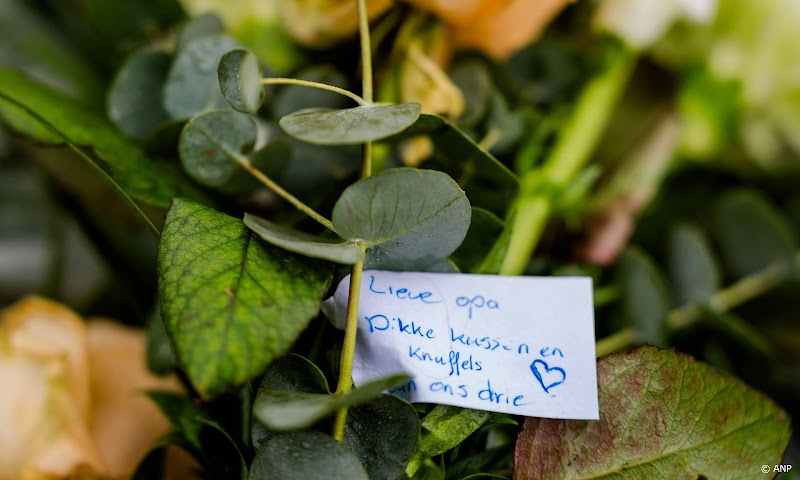 Lieve opa
Dikke kussen en
knuffels
van ons drie
© ANP